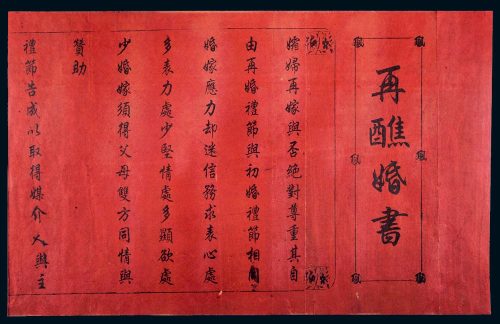 再醮婚書
孀婦再嫁與否絕對尊重其自
由再婚禮節與初婚禮節相
婚嫁應力却迷信務求表心處
多表力處少堅情處多顯欲處
少婚嫁須得父母雙方同情與
贊助
禮節告成以取得媒介人與主